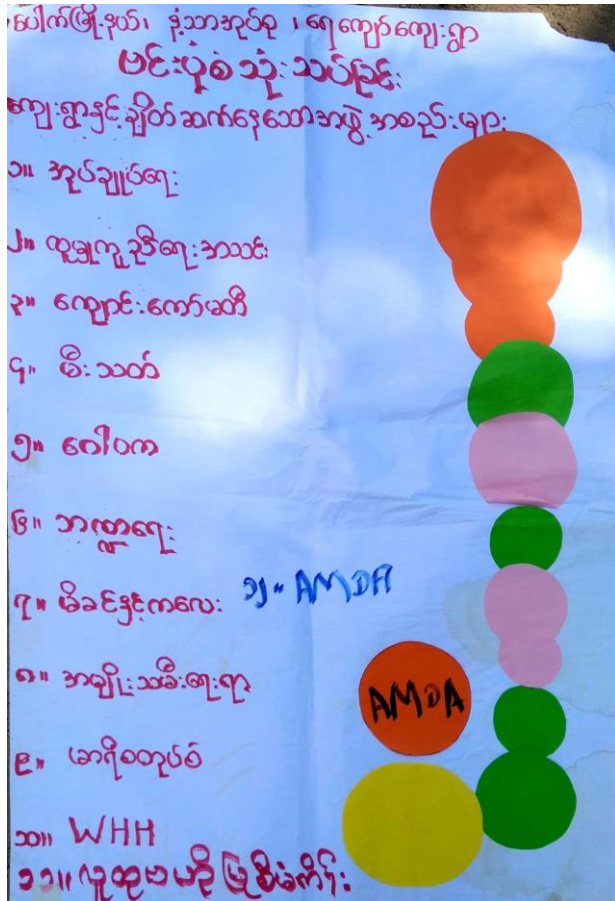 ပေါက်မြို့နယ်၊ နံ့သာအုပ်စု ၊ ရေကျော်ကျေးရွာ
ဗင်းပုံစံသုံးသပ်ခြင်း
ကျေးရွာနှင့်ချိတ်ဆက်နေသောအဖွဲ့အစည်းများ
၁။ အုပ်ချုပ်ရေး
၂။ လူမှုကူညီရေးအသင်း
၃။ ကျောင်းကော်မတီ
၄။ မီးသတ်
၅။ ဂေါပက
၆။ ဘဏ္ဍာရေး
၇။ မိခင်နှင့်ကလေး
၁၂။ AMDA
၈။ အမျိုးသမီးရေးရာ
AMDA
၉။ မာရီစတုပ်စ်
၁၀။ WHH
၁၁။ လူထုဗဟိုပြုစီမံကိန်း